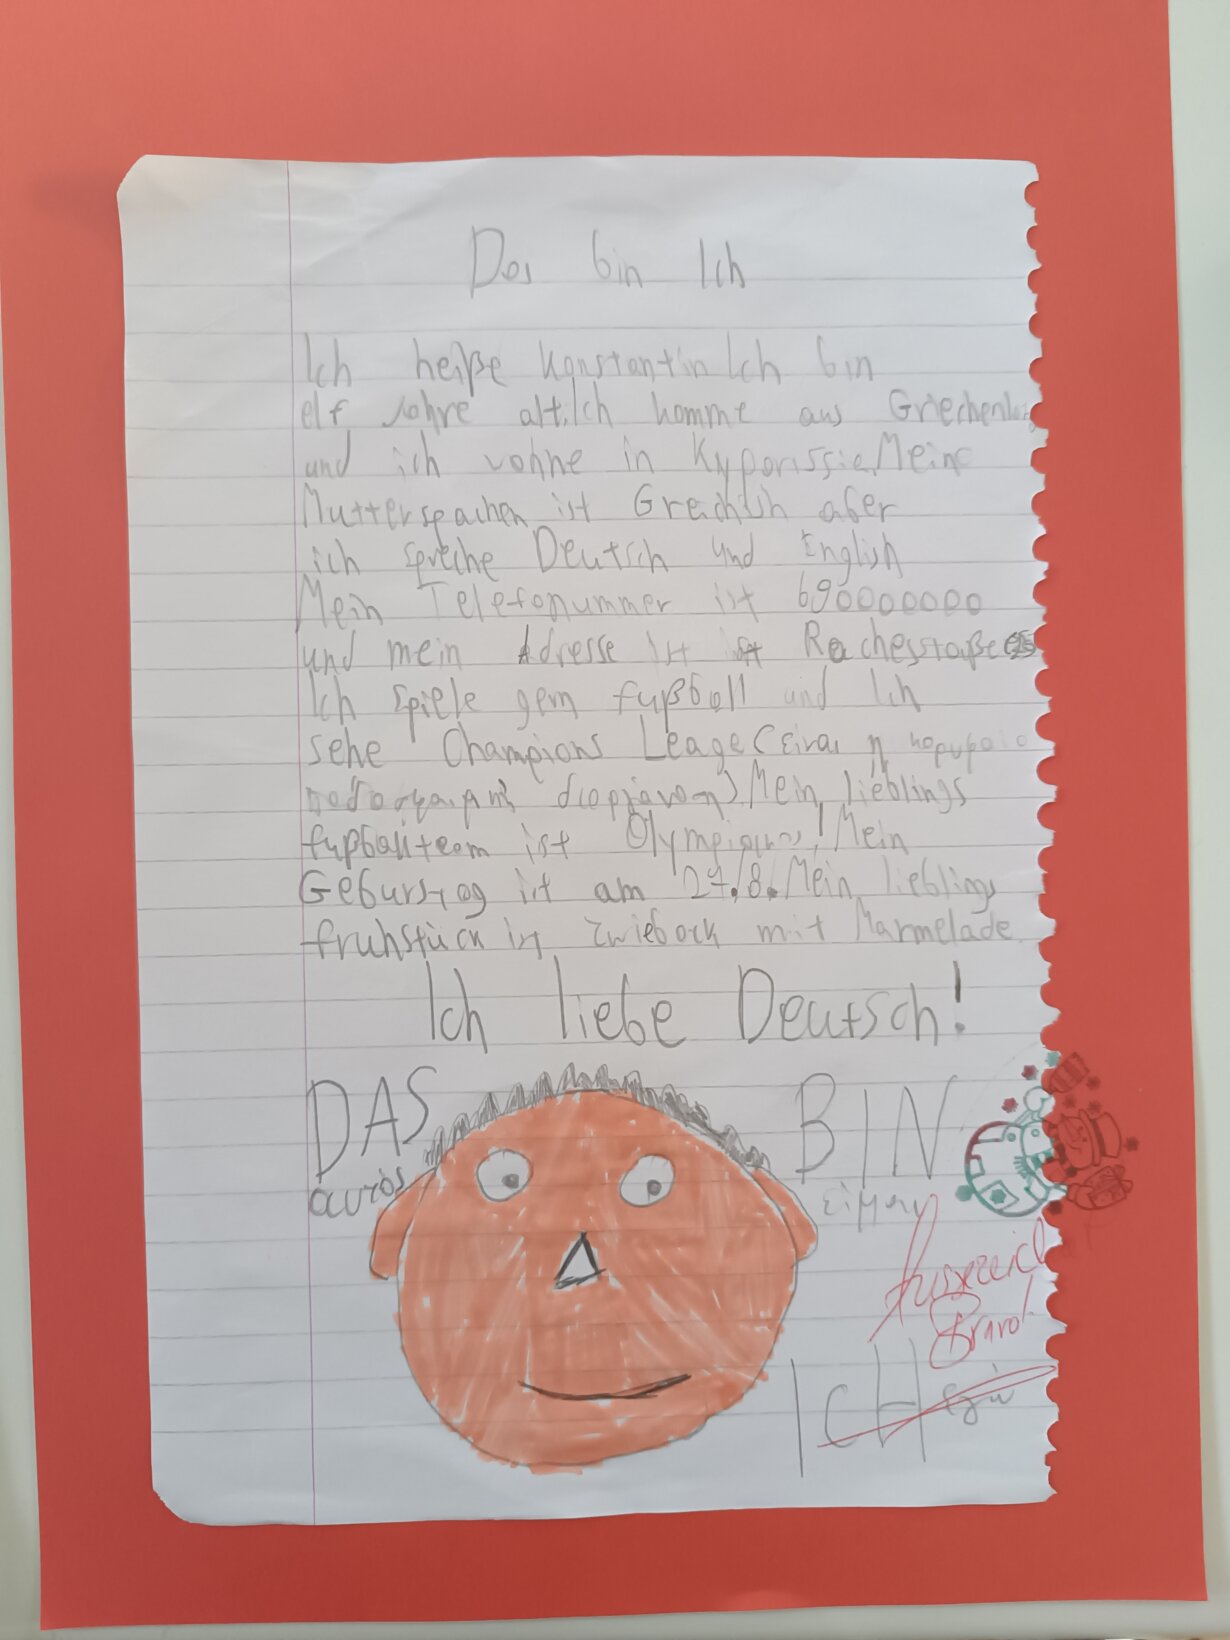 Das bin Ich
Ich heiße Konstantin Ich bin
elf Jahre alt.Ich komme aus Griechenland
und ich vohne in Kyparissia.Meine
Mutterspachen ist Greichish aber
ich spreche Deutsch und English
Mein Telefonummer ist 690000000
und mein Adresse ist Rachesstaße
Ich spiele gern fußball und Ich
sehe Champions Leage(είναι η κορυφαία
ποδοσφαιρική διοργάνωση).Mein lieblings
fußballteam ist Olympiakos!Mein
Geburstag ist am 27.8.Mein lieblings
fruhstück ist Zwieback mit Marmelade
Ich liebe Deutsch!
DAS BIN
αυτός είμαι
Bravo!
ICH εγώ